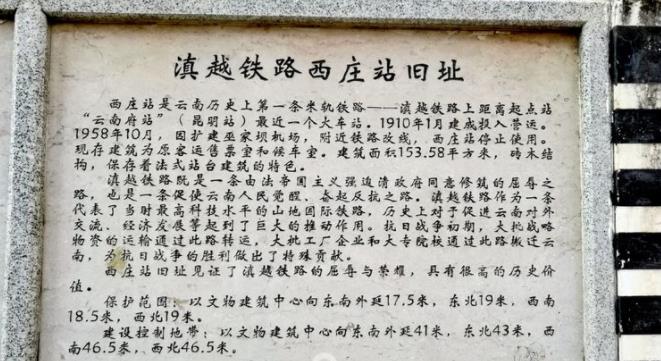 滇越铁路西庄站旧址
西庄站是云南历史上第一条米轨铁路——滇越铁路上距离起点站
“云南府站”（昆明站）最近一个火车站。1910年1月建成投入营运。
1958年10月，因扩建巫家坝机场，附近铁路改线，西庄站停止使用。
现存建筑为原客运售票室和候车室。建筑面积153.58平方米，砖木结
构，保存着法式站台建筑的特色。
滇越铁路既是一条由法帝国主义强迫清政府同意修筑的屈辱之
路，也是一条促使云南人民觉醒、奋起反抗之路。滇越铁路作为一条
代表了当时最高科技水平的山地国际铁路，历史上对于促进云南对外
交流、经济发展等起到了巨大的推动作用。抗日战争初期，大批战略
物资的运输通过此路转运，大批工厂企业和大专院校通过此路搬迁云
南，为抗日战争的胜利做出了特殊贡献。
西庄站旧址见证了滇越铁路的屈辱与荣耀，具有很高的历史价
值。
保护范围：以文物建筑中心向东南外延17.5米，东北19米，西南
18.5米，西北19米。
建设控制地带：以文物建筑中心向东南外延41米，东北43米，西
南46.5米，西北46.5米。